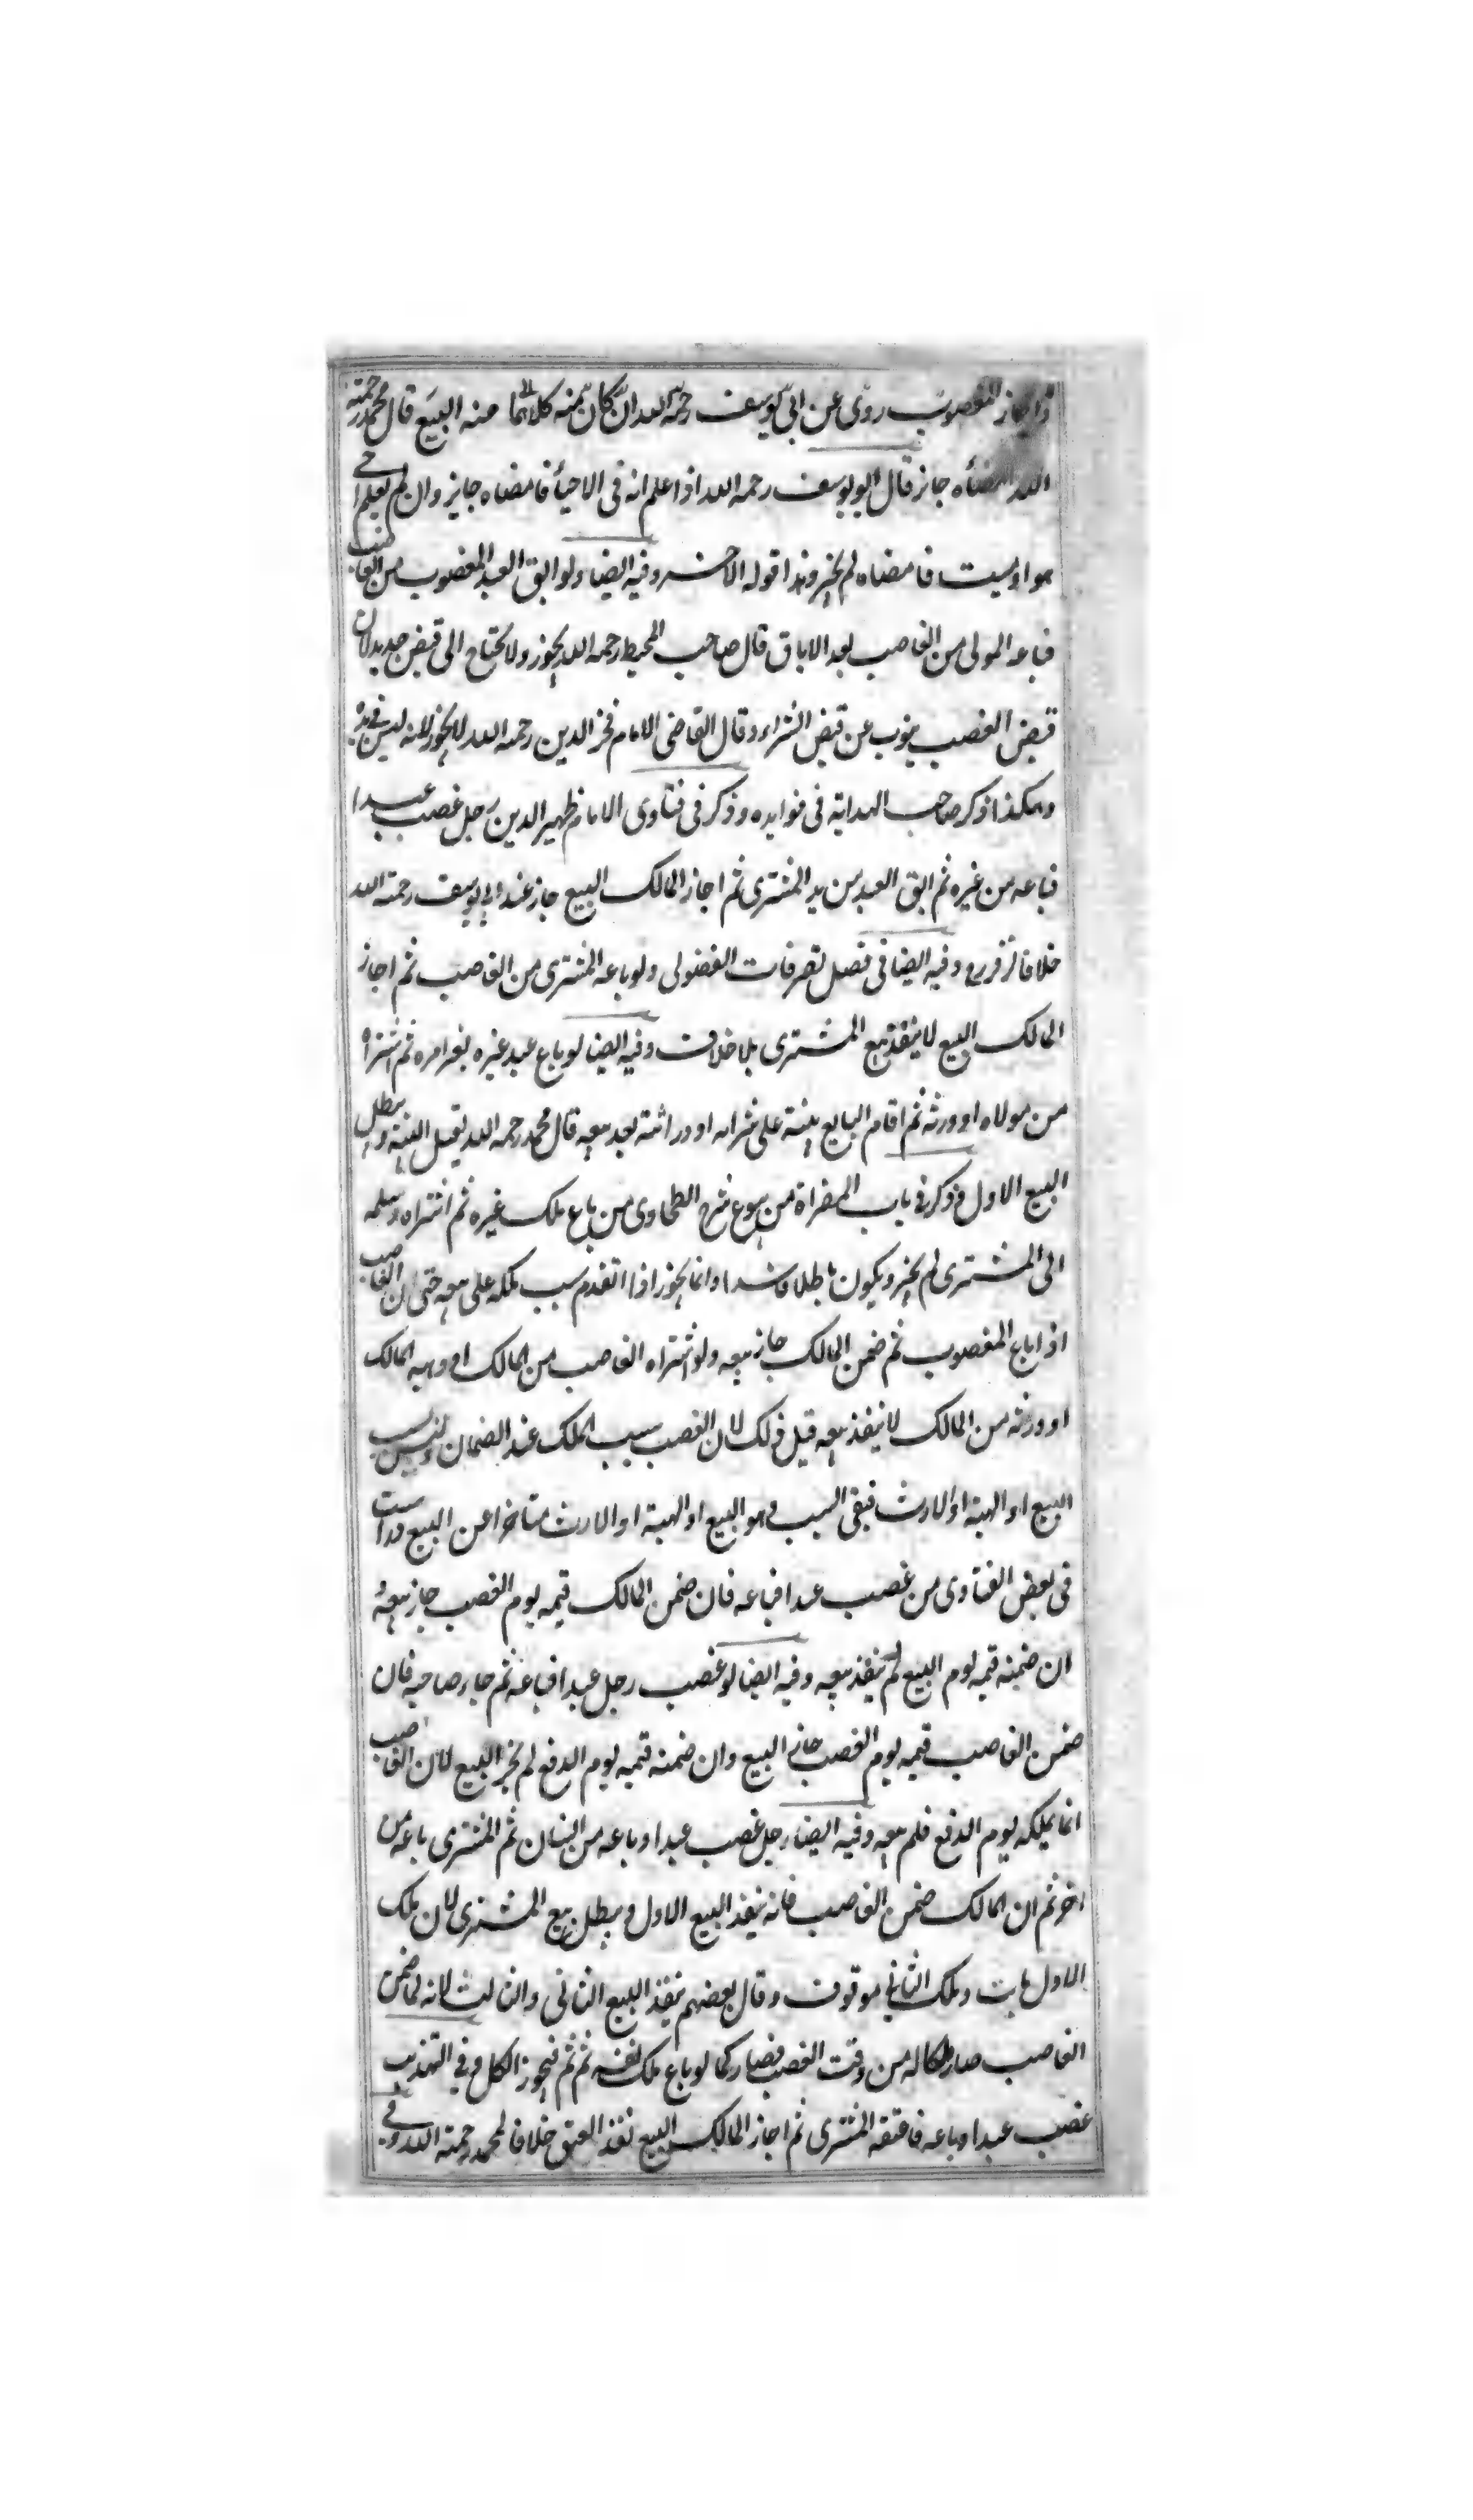 المغصوب روى عن ابى يوسف رحمه الله ان كان منه البيع قال محمد رحمة
الله امضاه جائز قال ابو يوسف رحمه الله اذا علم انه فى الاحياء فامضاه جايز وان لم يعلم احى
هو او ميت فامضاه لم يجز وهذا قوله الاخر وفيه ايضا ولو ابق العبد المغصوب من الغاصب
فباعه المولى من الغاصب بعد الاباق قال صاحب المحيط رحمه الله يجوز ولا يحتاج الى قبض جديد لان
قبض الغصب ينوب عن قبض الشراء وقال القاضى الامام فخر الدين رحمه الله لا يجوز لانه ليس فى يده
وهكذا ذكر صاحب الهداية فى فوايده وذكر فى فتاوى الامام ظهير الدين رجل غصب عبدا
فباعه من غيره ثم ابق العبد من يد المشترى ثم اجاز المالك البيع جاز عند ابى يوسف رحمة الله
خلافا لزفر رح وفيه ايضا فى فصل تصرفات الفضولى ولو باعه المشترى من الغاصب ثم اجاز
المالك البيع لا ينفذ بيع المشترى بلا خلاف وفيه ايضا لو باع عبد غيره بغير امره ثم اشتراه
من مولاه او ورثه ثم اقام البايع بينة على شرائه او وراثته بعد بيعه قال محمد رحمه الله تقبل البينة ويبطل
البيع الاول وذكر فى باب المصراة من بيوع شرح الطحاوى من باع ملك غيره ثم اشتراه وسلمه
الى المشترى لم يجز ويكون باطلا فاسدا وانما يجوز اذا تقدم سبب ملكه على بيعه حتى ان الغاصب
اذا باع المغصوب ثم ضمن المالك جاز بيعه ولو اشتراه الغاصب من المالك او وهبه المالك
او ورثه من المالك لا ينفذ بيعه قبل ذلك لان الغصب سبب الملك عند الضمان وليس سبب
البيع او الهبة او الارث فبقى السبب وهو البيع او الهبة او الارث متاخرا عن البيع ورايت
فى بعض الفتاوى من غصب عبدا فباعه فان ضمن المالك قيمه يوم الغصب جاز بيعه و
ان ضمنه قيمه يوم البيع لم ينفذ بيعه وفيه ايضا لو غصب رجل عبدا فباعه ثم جاء صاحبه فان
ضمن الغاصب قيمه يوم الغصب جاز البيع وان ضمنه قيمه يوم الدفع لم يجز البيع لان الغاصب
انما يملكه يوم الدفع فلم بيعه وفيه ايضا رجل غصب عبدا وباعه من انسان ثم المشترى باعه من
اخر ثم ان المالك ضمن الغاصب فانه ينفذ البيع الاول ويبطل بيع المشترى لان ملك
الاول بات وملك الثانى موقوف وقال بعضهم ينفذ البيع الثانى والثالث لانه لما ضمن
الغاصب صار ملكا له من وقت الغصب فصار كما لو باع ملك نفسه ثم ثم فيجوز الكل وفى التهذيب
غصب عبدا وباعه فاعتقه المشترى ثم اجاز المالك البيع نفذ العتق خلافا لمحمد رحمة الله وفى